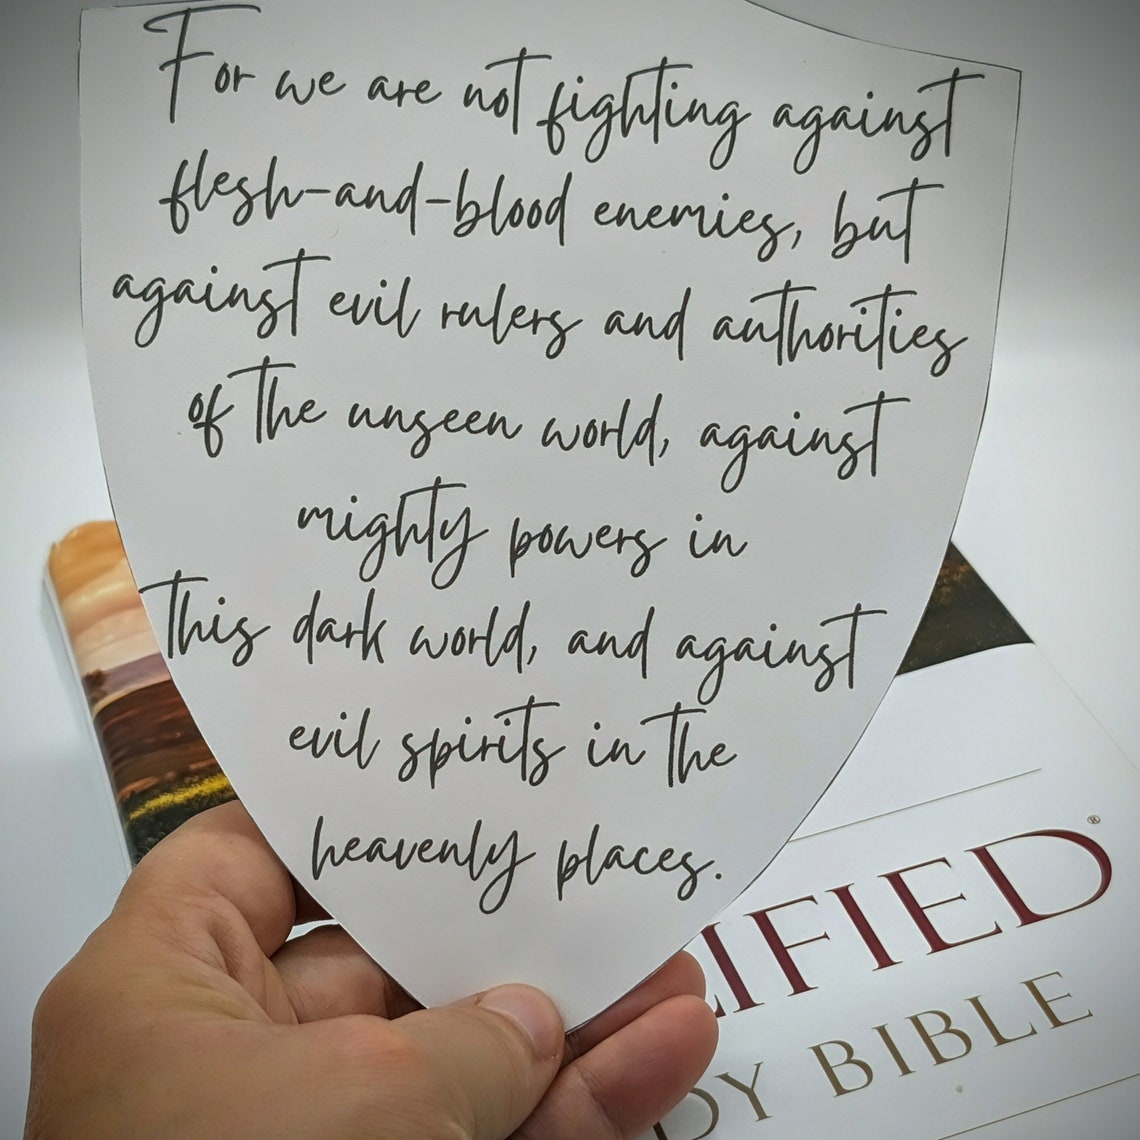 For we are not fighting against
flesh-and-blood enemies, but
against evil rulers and authorities
of the unseen world, against
mighty powers in
this dark world, and against
evil spirits in the
heavenly places.
IFIED®
DY BIBLE